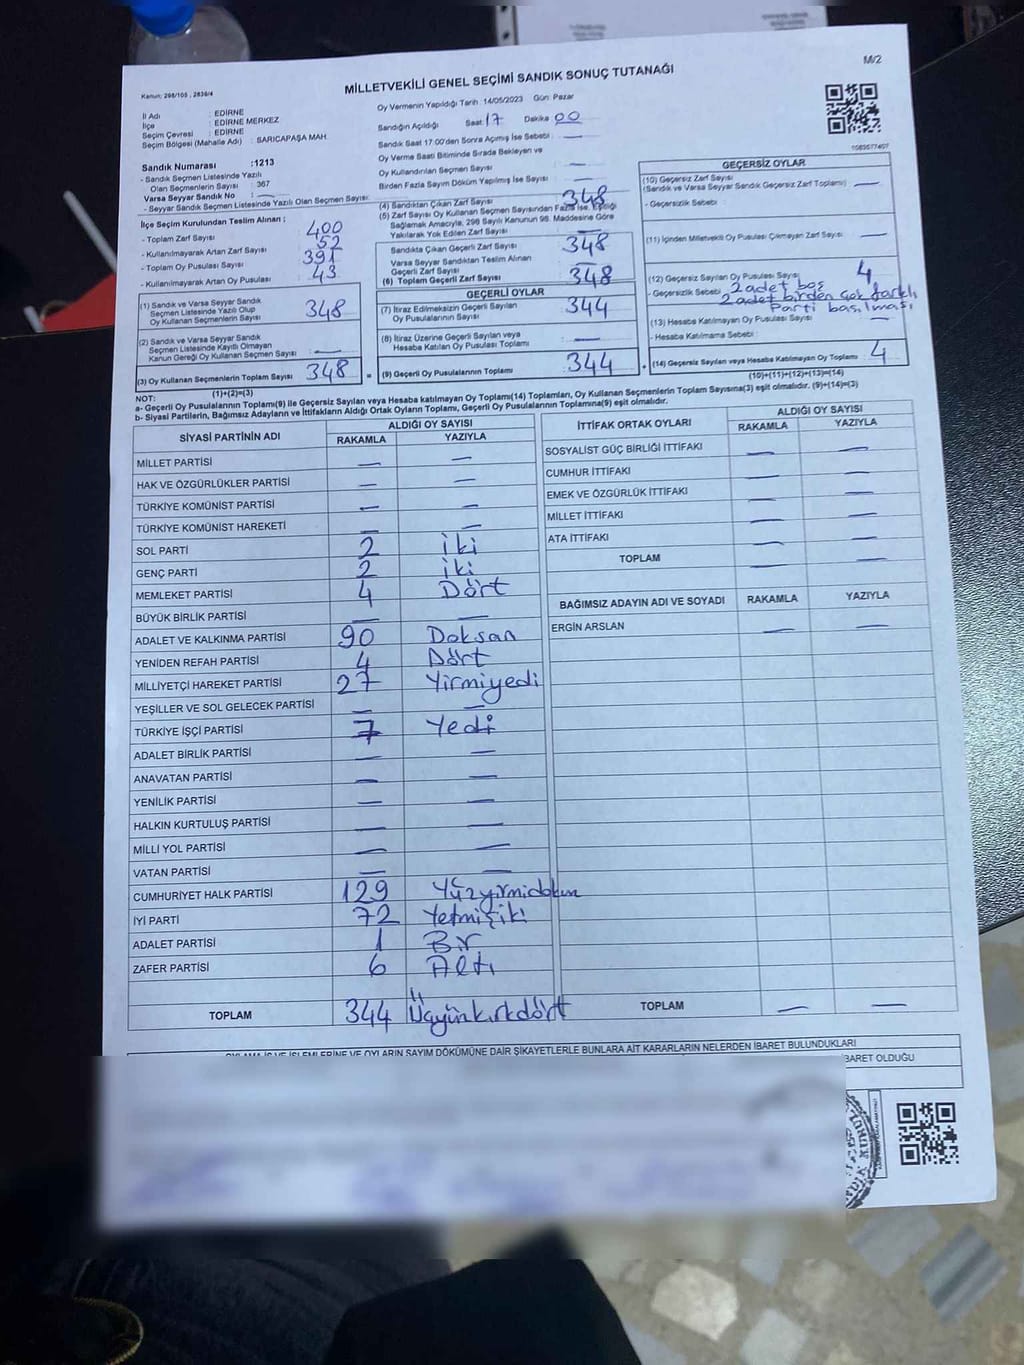 M/2
MİLLETVEKİLİ GENEL SEÇİMİ SANDIK SONUÇ TUTANAĞI
Kanun: 298/105 , 2839/4
İl Adı : EDİRNE
İlçe : EDİRNE MERKEZ
Seçim Çevresi : EDİRNE
Seçim Bölgesi (Mahalle Adı) : SARICAPAŞA MAH.
Sandık Numarası :1213
- Sandık Seçmen Listesinde Yazılı
Olan Seçmenlerin Sayısı : 367
Varsa Seyyar Sandık No : —
- Seyyar Sandık Seçmen Listesinde Yazılı Olan Seçmen Sayısı:
İlçe Seçim Kurulundan Teslim Alınan ;
- Toplam Zarf Sayısı 400
- Kullanılmayarak Artan Zarf Sayısı 52
- Toplam Oy Pusulası Sayısı 391
- Kullanılmayarak Artan Oy Pusulası 43
(1) Sandık ve Varsa Seyyar Sandık
Seçmen Listesinde Yazılı Olup
Oy Kullanan Seçmenlerin Sayısı 348
(2) Sandık ve Varsa Seyyar Sandık
Seçmen Listesinde Kayıtlı Olmayan
Kanun Gereği Oy Kullanan Seçmen Sayısı —
(3) Oy Kullanan Seçmenlerin Toplam Sayısı 348
(1)+(2)=(3)
Oy Vermenin Yapıldığı Tarih :14/05/2023 Gün: Pazar
Sandığın Açıldığı Saat 17 Dakika 00
Sandık Saat 17.00'den Sonra Açılmış İse Sebebi : —
Oy Verme Saati Bitiminde Sırada Bekleyen ve
Oy Kullandırılan Seçmen Sayısı : —
Birden Fazla Sayım Döküm Yapılmış İse Sayısı : —
(4) Sandıktan Çıkan Zarf Sayısı 348
(5) Zarf Sayısı Oy Kullanan Seçmen Sayısından Fazla İse, Eşitliği
Sağlamak Amacıyla, 298 Sayılı Kanunun 98. Maddesine Göre
Yakılarak Yok Edilen Zarf Sayısı —
Sandıkta Çıkan Geçerli Zarf Sayısı 348
Varsa Seyyar Sandıktan Teslim Alınan
Geçerli Zarf Sayısı —
(6) Toplam Geçerli Zarf Sayısı 348
GEÇERLİ OYLAR
(7) İtiraz Edilmeksizin Geçerli Sayılan
Oy Pusulalarının Sayısı 344
(8) İtiraz Üzerine Geçerli Sayılan veya
Hesaba Katılan Oy Pusulası Toplamı —
= (9) Geçerli Oy Pusulalarının Toplamı 344 +
GEÇERSİZ OYLAR
(10) Geçersiz Zarf Sayısı
(Sandık ve Varsa Seyyar Sandık Geçersiz Zarf Toplamı) —
- Geçersizlik Sebebi :
(11) İçinden Milletvekili Oy Pusulası Çıkmayan Zarf Sayısı —
(12) Geçersiz Sayılan Oy Pusulası Sayısı 4
- Geçersizlik Sebebi : 2 adet boş
2 adet birden çok farklı
Parti basılması
(13) Hesaba Katılmayan Oy Pusulası Sayısı —
- Hesaba Katılmama Sebebi :
(14) Geçersiz Sayılan veya Hesaba Katılmayan Oy Toplamı 4
(10)+(11)+(12)+(13)=(14)
NOT:
a- Geçerli Oy Pusulalarının Toplamı(9) ile Geçersiz Sayılan veya Hesaba katılmayan Oy Toplamı(14) Toplamları, Oy Kullanan Seçmenlerin Toplam Sayısına(3) eşit olmalıdır. (9)+(14)=(3)
b- Siyasi Partilerin, Bağımsız Adayların ve İttifakların Aldığı Ortak Oyların Toplamı, Geçerli Oy Pusulalarının Toplamına(9) eşit olmalıdır.
SİYASİ PARTİNİN ADI ALDIĞI OY SAYISI
RAKAMLA YAZIYLA
MİLLET PARTİSİ — —
HAK VE ÖZGÜRLÜKLER PARTİSİ — —
TÜRKİYE KOMÜNİST PARTİSİ — —
TÜRKİYE KOMÜNİST HAREKETİ — —
SOL PARTİ 2 iki
GENÇ PARTİ 2 iki
MEMLEKET PARTİSİ 4 Dört
BÜYÜK BİRLİK PARTİSİ — —
ADALET VE KALKINMA PARTİSİ 90 Doksan
YENİDEN REFAH PARTİSİ 4 Dört
MİLLİYETÇİ HAREKET PARTİSİ 27 Yirmiyedi
YEŞİLLER VE SOL GELECEK PARTİSİ — —
TÜRKİYE İŞÇİ PARTİSİ 7 Yedi
ADALET BİRLİK PARTİSİ — —
ANAVATAN PARTİSİ — —
YENİLİK PARTİSİ — —
HALKIN KURTULUŞ PARTİSİ — —
MİLLİ YOL PARTİSİ — —
VATAN PARTİSİ — —
CUMHURİYET HALK PARTİSİ 129 Yüzyirmidokuz
İYİ PARTİ 72 Yetmişiki
ADALET PARTİSİ 1 Bir
ZAFER PARTİSİ 6 Altı
TOPLAM 344 Üçyüzkırkdört
İTTİFAK ORTAK OYLARI ALDIĞI OY SAYISI
RAKAMLA YAZIYLA
SOSYALİST GÜÇ BİRLİĞİ İTTİFAKI — —
CUMHUR İTTİFAKI — —
EMEK VE ÖZGÜRLÜK İTTİFAKI — —
MİLLET İTTİFAKI — —
ATA İTTİFAKI — —
TOPLAM — —
BAĞIMSIZ ADAYIN ADI VE SOYADI RAKAMLA YAZIYLA
ERGİN ARSLAN — —
TOPLAM — —
OYLAMA İŞ VE İŞLEMLERİNE VE OYLARIN SAYIM DÖKÜMÜNE DAİR ŞİKAYETLERLE BUNLARA AİT KARARLARIN NELERDEN İBARET BULUNDUKLARI
İBARET OLDUĞU